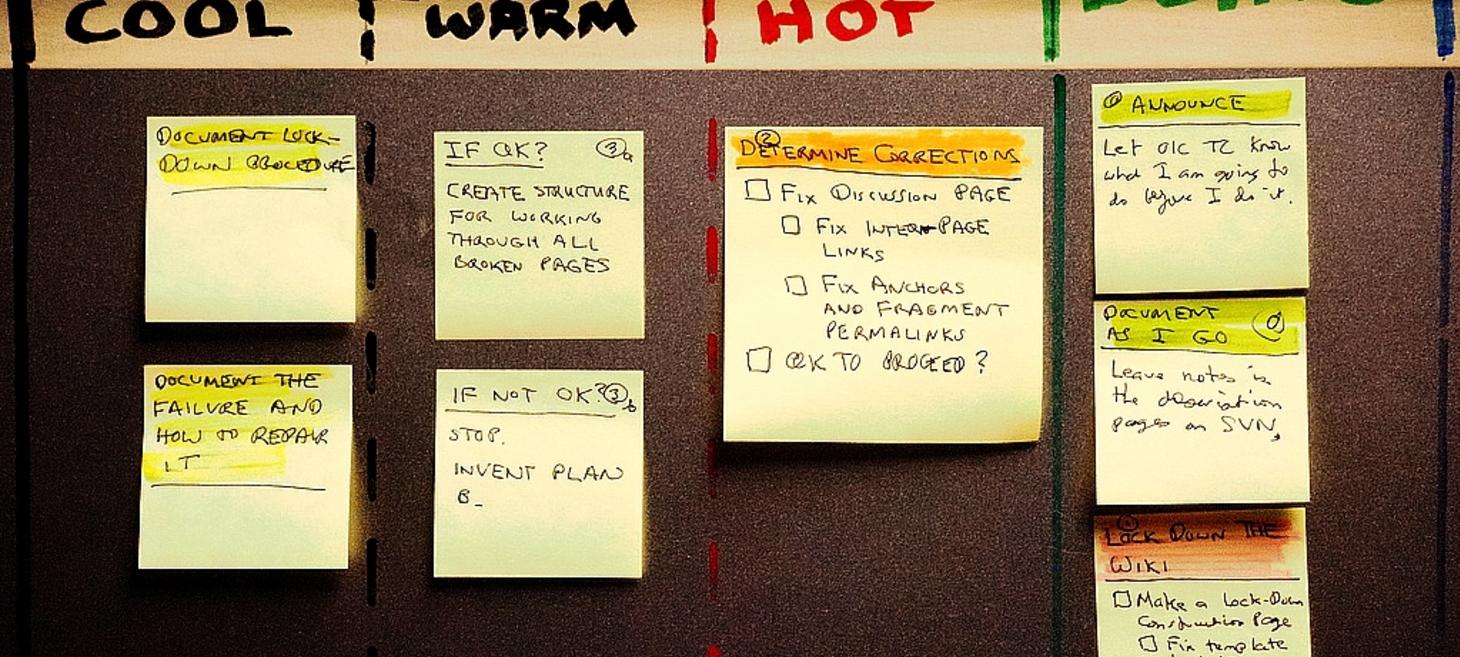 COOL
WARM
HOT
DOCUMENT LOCK-
DOWN PROCEDURE
DOCUMENT THE
FAILURE AND
HOW TO REPAIR
IT
IF OK? 3a
CREATE STRUCTURE
FOR WORKING
THROUGH ALL
BROKEN PAGES
IF NOT OK? 3b
STOP.
INVENT PLAN
B_
2
DETERMINE CORRECTIONS
FIX DISCUSSION PAGE
FIX INTER-PAGE
LINKS
FIX ANCHORS
AND FRAGMENT
PERMALINKS
OK TO PROCEED?
0 ANNOUNCE
Let OIC TC know
what I am going to
do before I do it.
DOCUMENT
AS I GO 0
Leave notes in
the description
pages on SVN,
1
LOCK DOWN THE
WIKI
Make a Lock-Down
Construction Page
Fix template